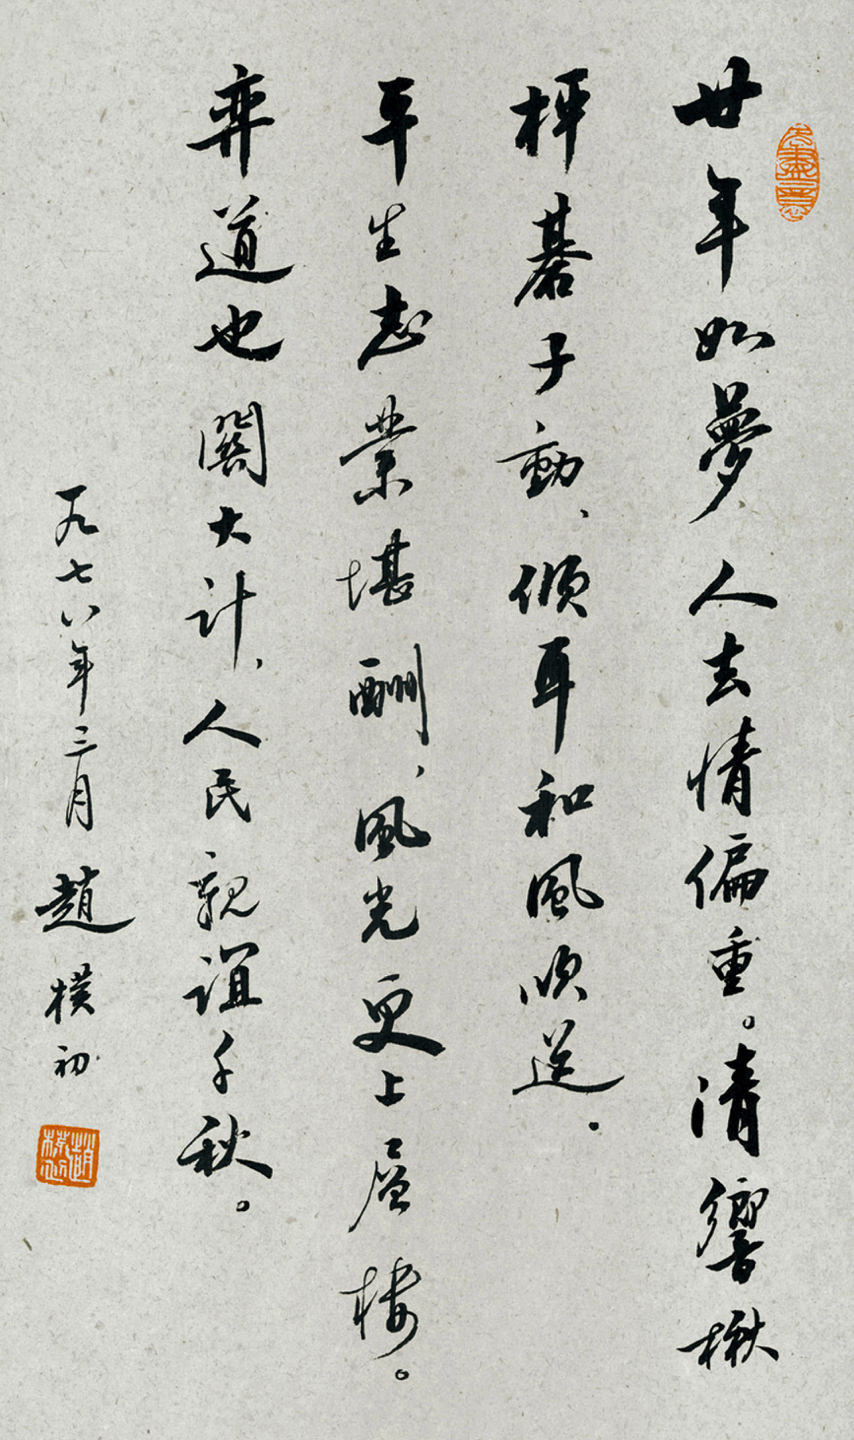 廿年如夢人去情偏重。清響楸
枰碁子動、傾耳和風順送。
平生志業堪酬、風光更上层樓。
弈道也關大計、人民親誼千秋。
一九七八年三月 趙樸初